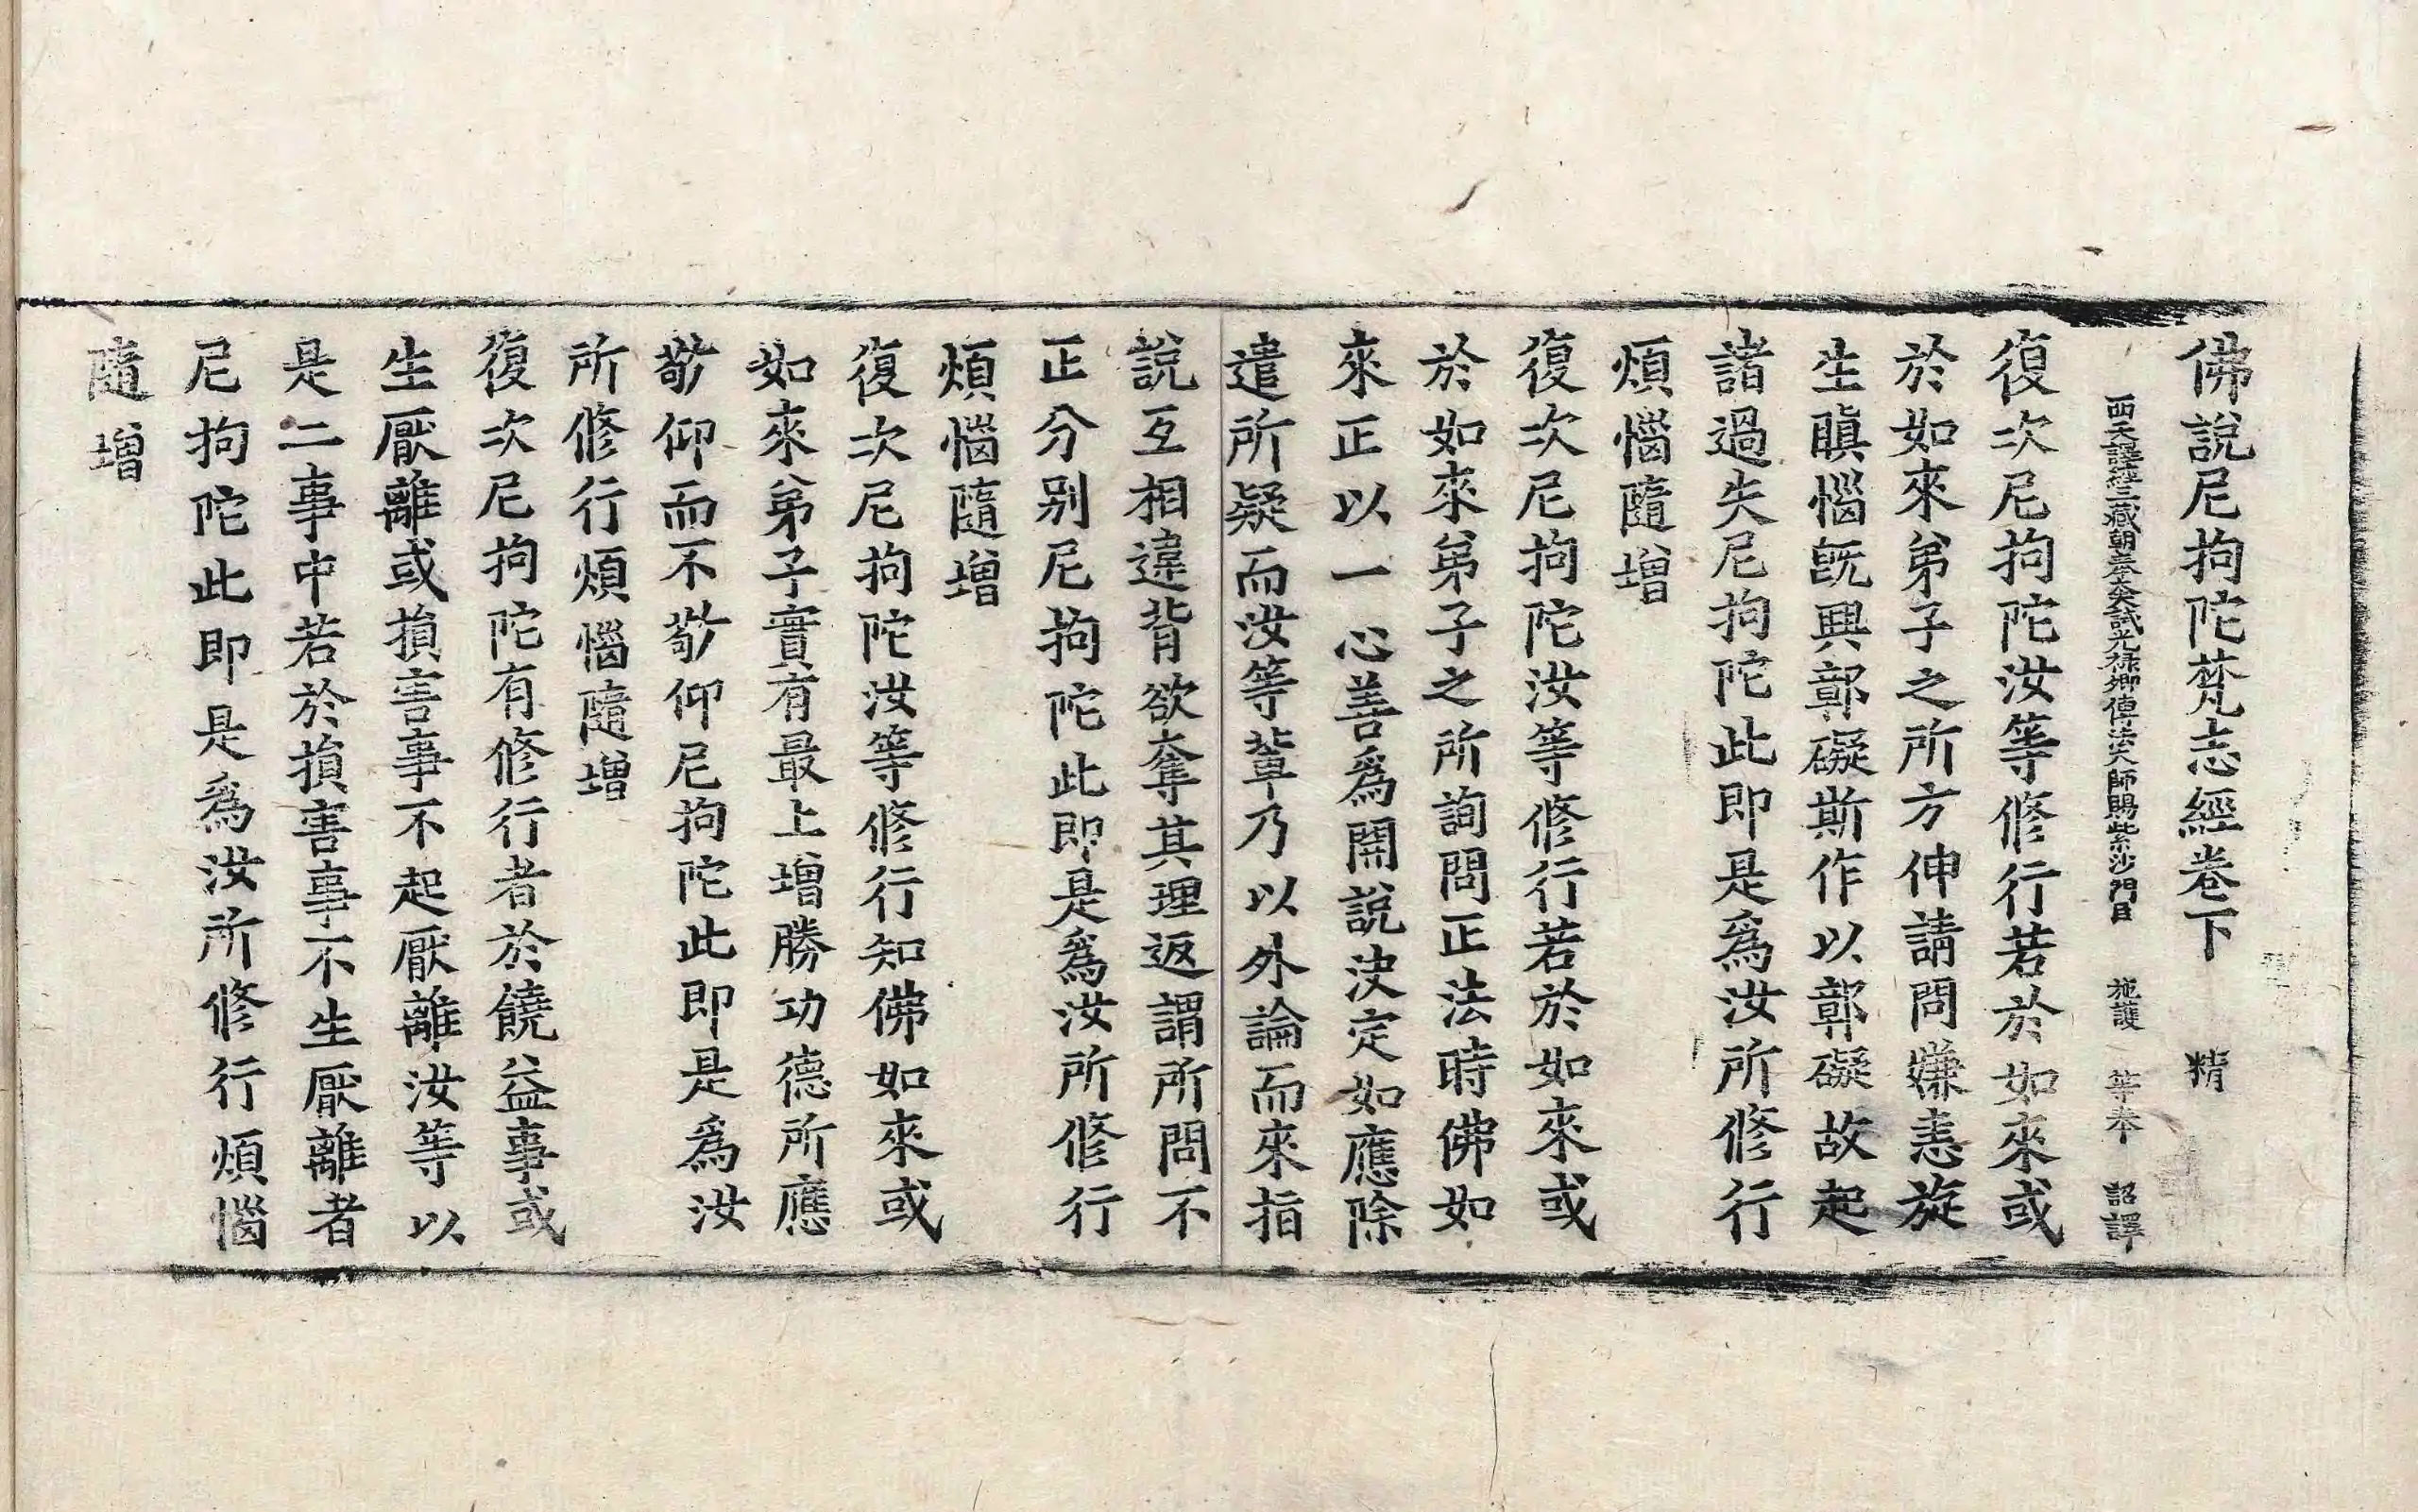 佛說尼拘陀梵志經卷下 精
西天譯經三藏朝奉大夫試光祿卿傳法大師賜紫沙門臣 施護 等奉 詔譯
復次尼拘陀汝等修行若於如來或
於如來弟子之所方伸請問嫌恚旋
生瞋惱旣興鄣礙斯作以鄣礙故起
諸過失尼拘陀此即是爲汝所修行
煩惱隨增
復次尼拘陀汝等修行若於如來或
於如來弟子之所詢問正法時佛如
來正以一心善爲開說決定如應除
遣所疑而汝等輩乃以外論而來指
說互相違背欲奪其理返謂所問不
正分别尼拘陀此即是爲汝所修行
煩惱隨增
復次尼拘陀汝等修行知佛如來或
如來弟子實有最上增勝功德所應
敬仰而不敬仰尼拘陀此即是爲汝
所修行煩惱隨增
復次尼拘陀有修行者於饒益事或
生厭離或損害事不起厭離汝等以
是二事中若於損害事不生厭離者
尼拘陀此即是爲汝所修行煩惱
隨增